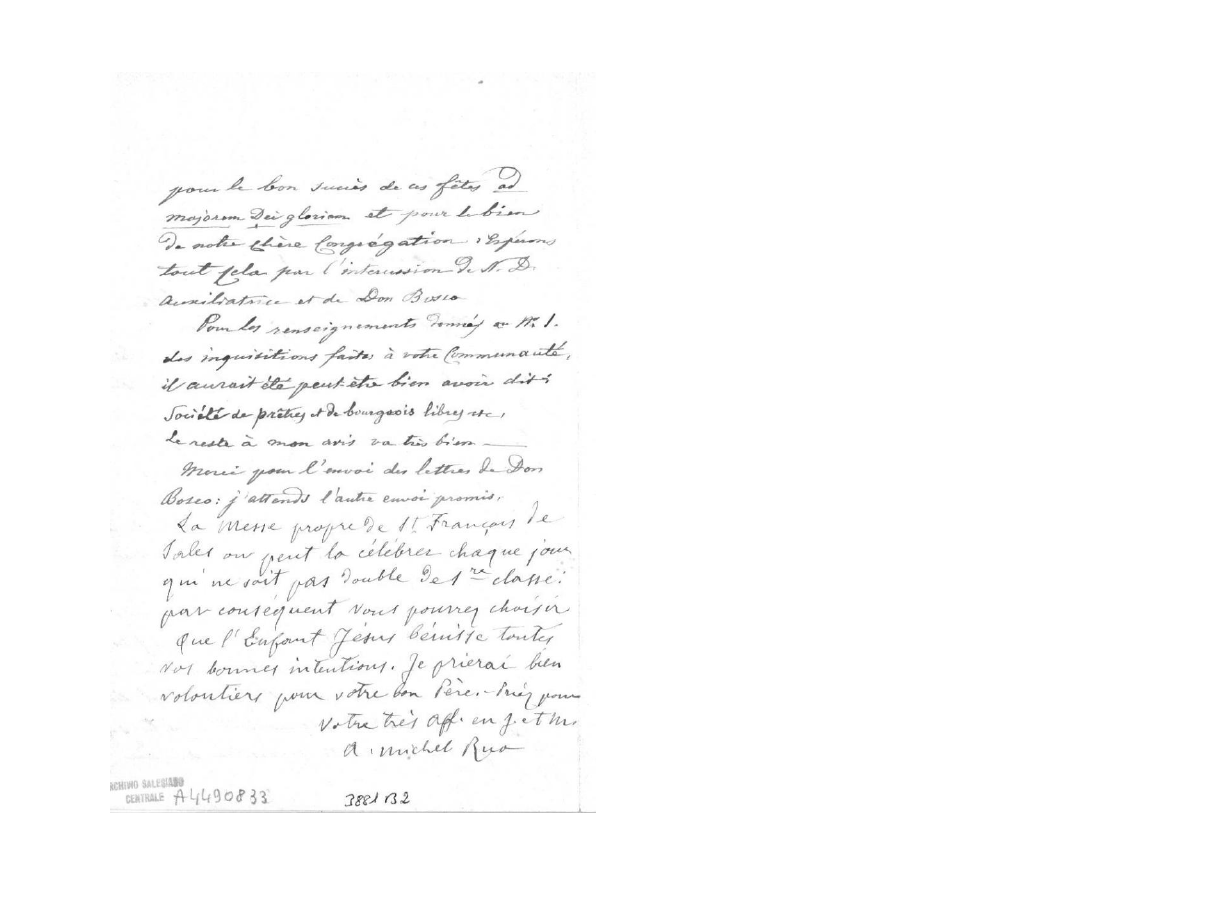 pour le bon succès de ces fêtes ad
majorem Dei gloriam et pour le bien
de notre chère Congrégation : Espérons
tout cela par l'intercession de N. D.
Auxiliatrice et de Don Bosco
Pour les renseignements donnés
des inquisitions faites à votre Communauté,
il aurait été peut-être bien avoir dit :
Société de prêtres et de bourgeois libres etc.
Le reste à mon avis va très bien —
Merci pour l'envoi des lettres de Don
Bosco : j'attends l'autre envoi promis.
La Messe propre de St François de
Sales on peut la célébrer chaque jour
qui ne soit pas double de 1re classe :
par conséquent vous pourrez choisir
Que l'Enfant Jésus bénisse toutes
vos bonnes intentions. Je prierai bien
volontiers pour votre bon Père. - Priez pour
Votre très aff. en J. et M.
A. Michel Rua
ARCHIVIO SALESIANO
CENTRALE A4490833
3881 B2